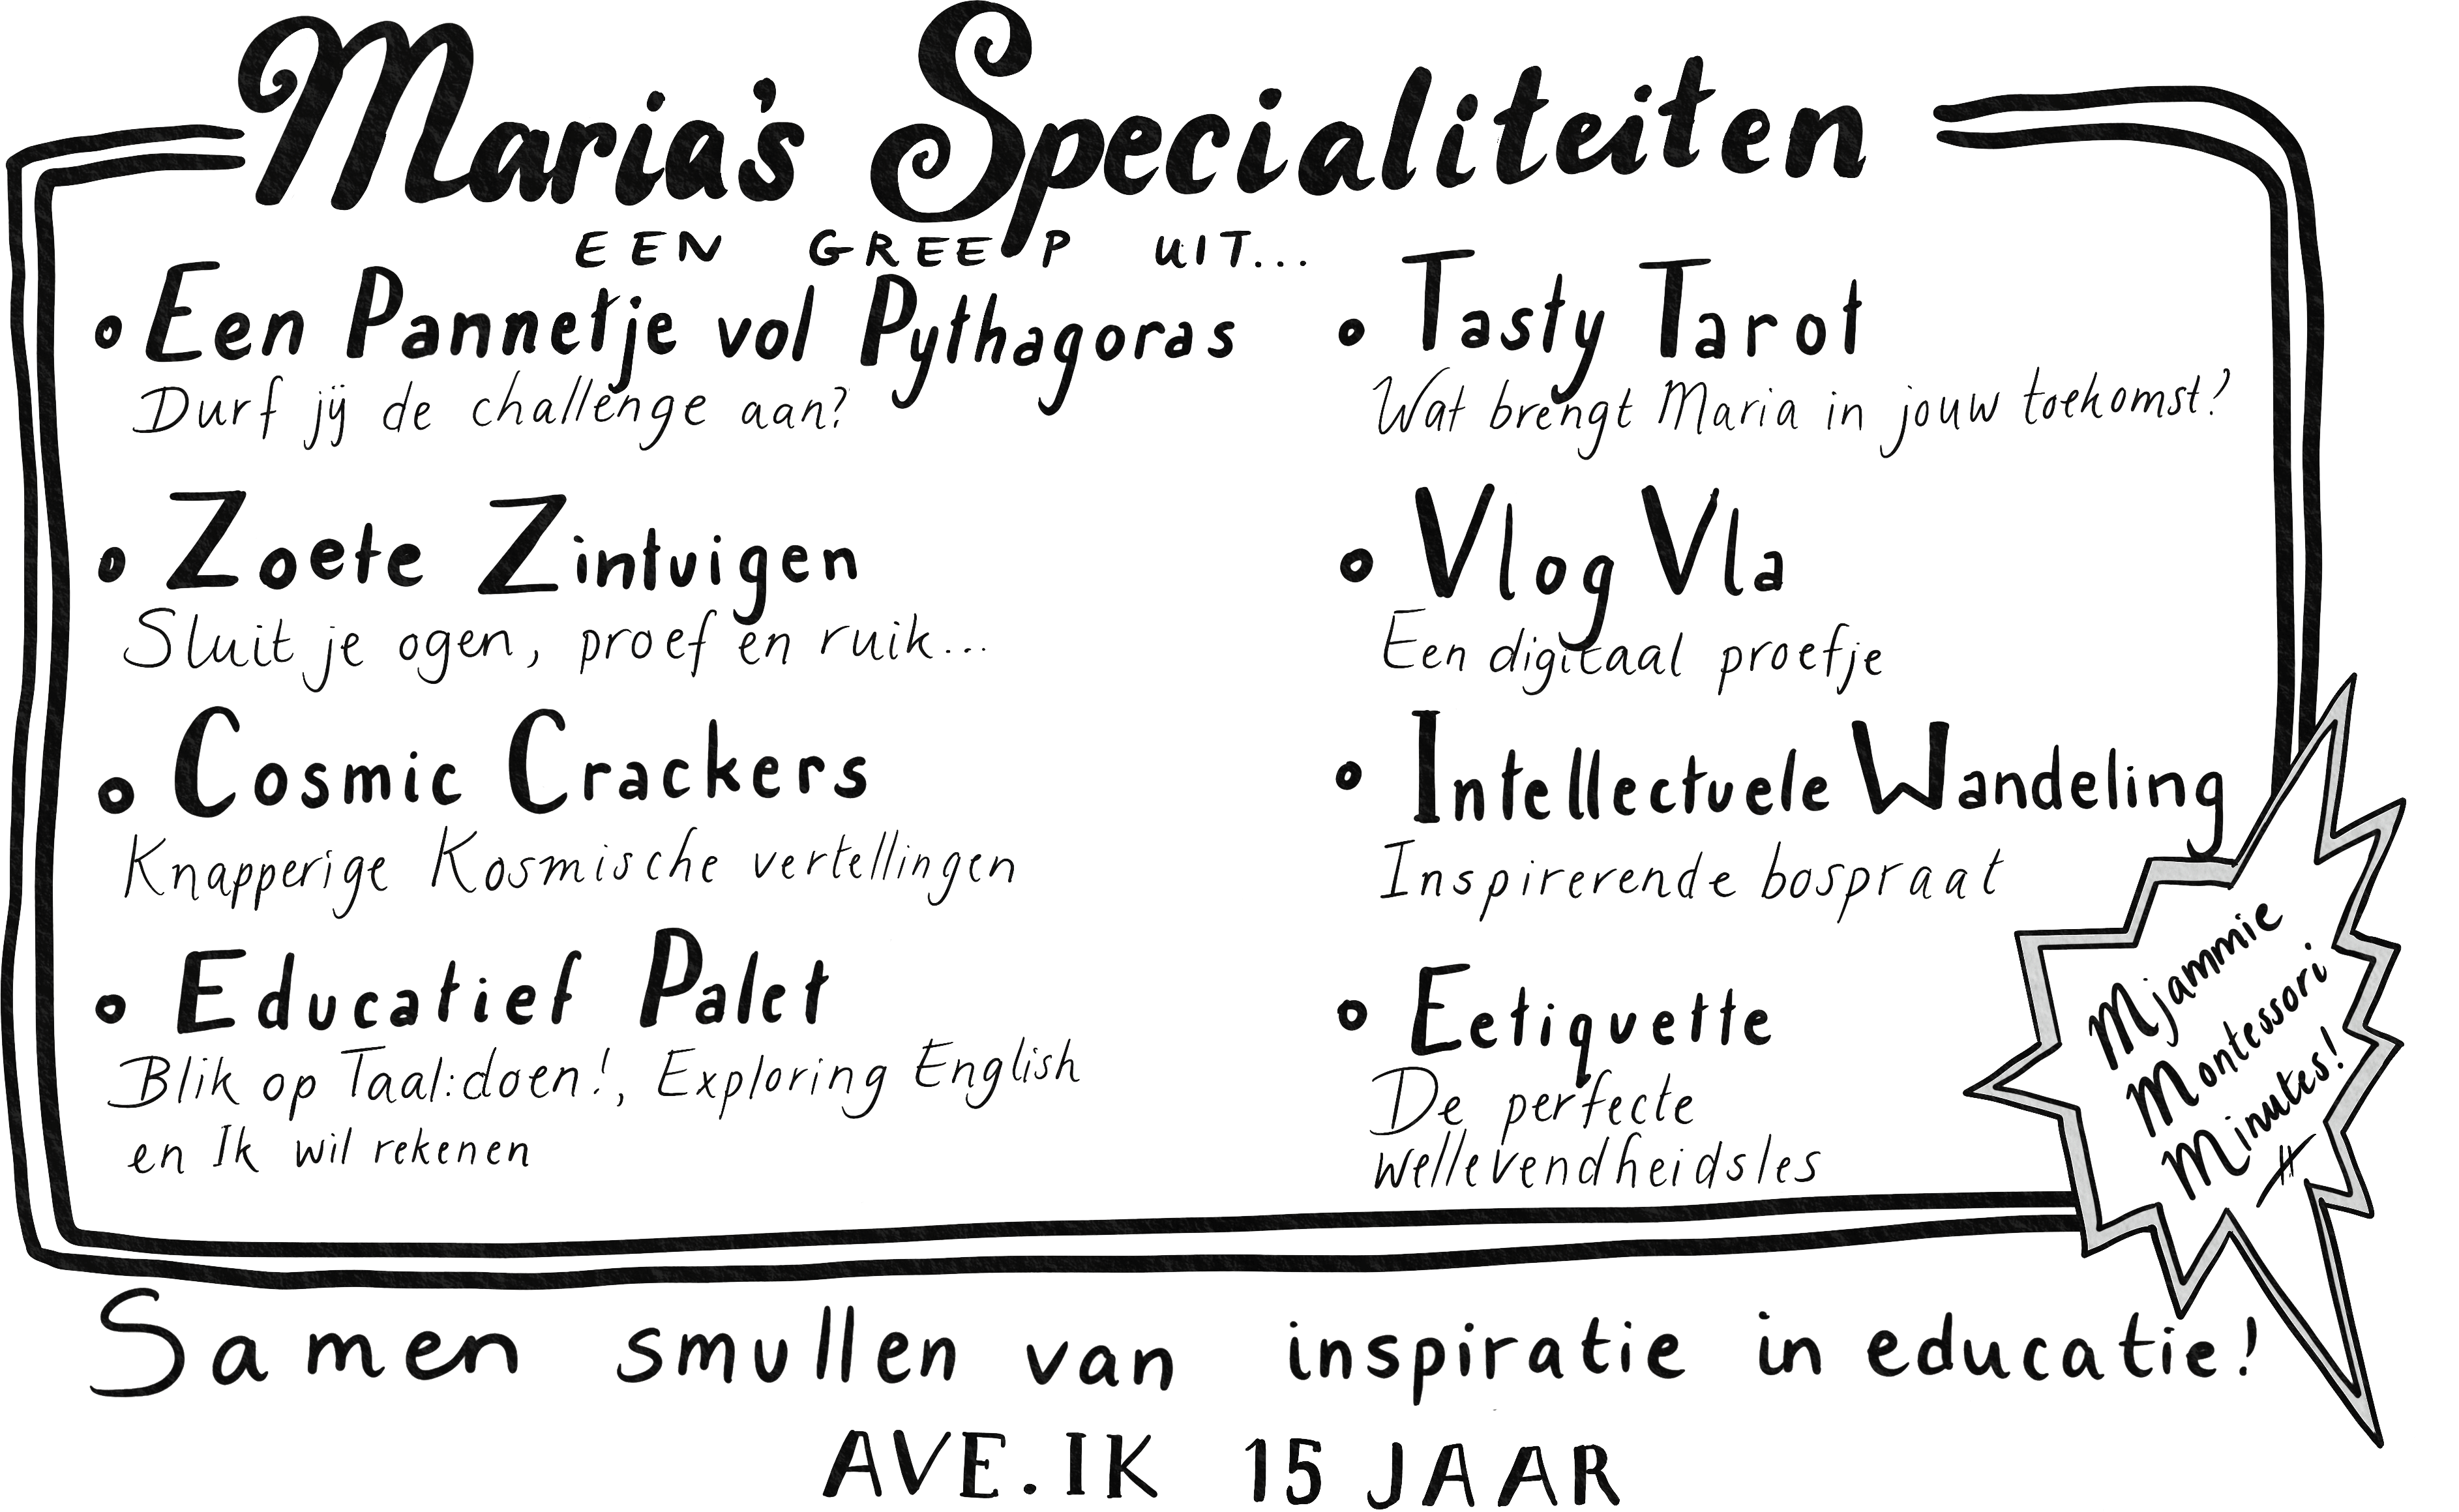 Maria's Specialiteiten
EEN GREEP UIT...
• Een Pannetje vol Pythagoras
Durf jij de challenge aan?
• Zoete Zintuigen
Sluit je ogen, proef en ruik...
• Cosmic Crackers
Knapperige Kosmische vertellingen
• Educatief Palet
Blik op Taal:doen!, Exploring English
en Ik wil rekenen
• Tasty Tarot
Wat brengt Maria in jouw toekomst?
• Vlog Vla
Een digitaal proefje
• Intellectuele Wandeling
Inspirerende bospraat
• Eetiquette
De perfecte
wellevendheidsles
Mjammie
Montessori
Minutes!
Samen smullen van inspiratie in educatie!
AVE.IK 15 JAAR